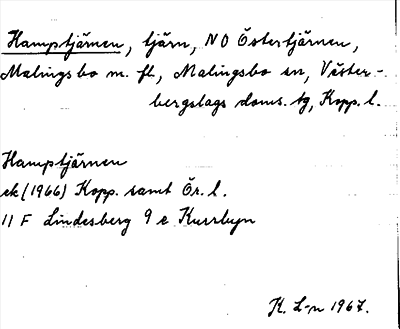 Hamptjärnen, tjärn, NO Östertjärnen,
Malingsbo m. fl., Malingsbo sn, Väster-
bergslags doms. tg, Kopp. l.
Hamptjärnen
ek (1966) Kopp. samt Ör. l.
11 F Lindesberg 9 e Kursbyn
K. L-n 1967.